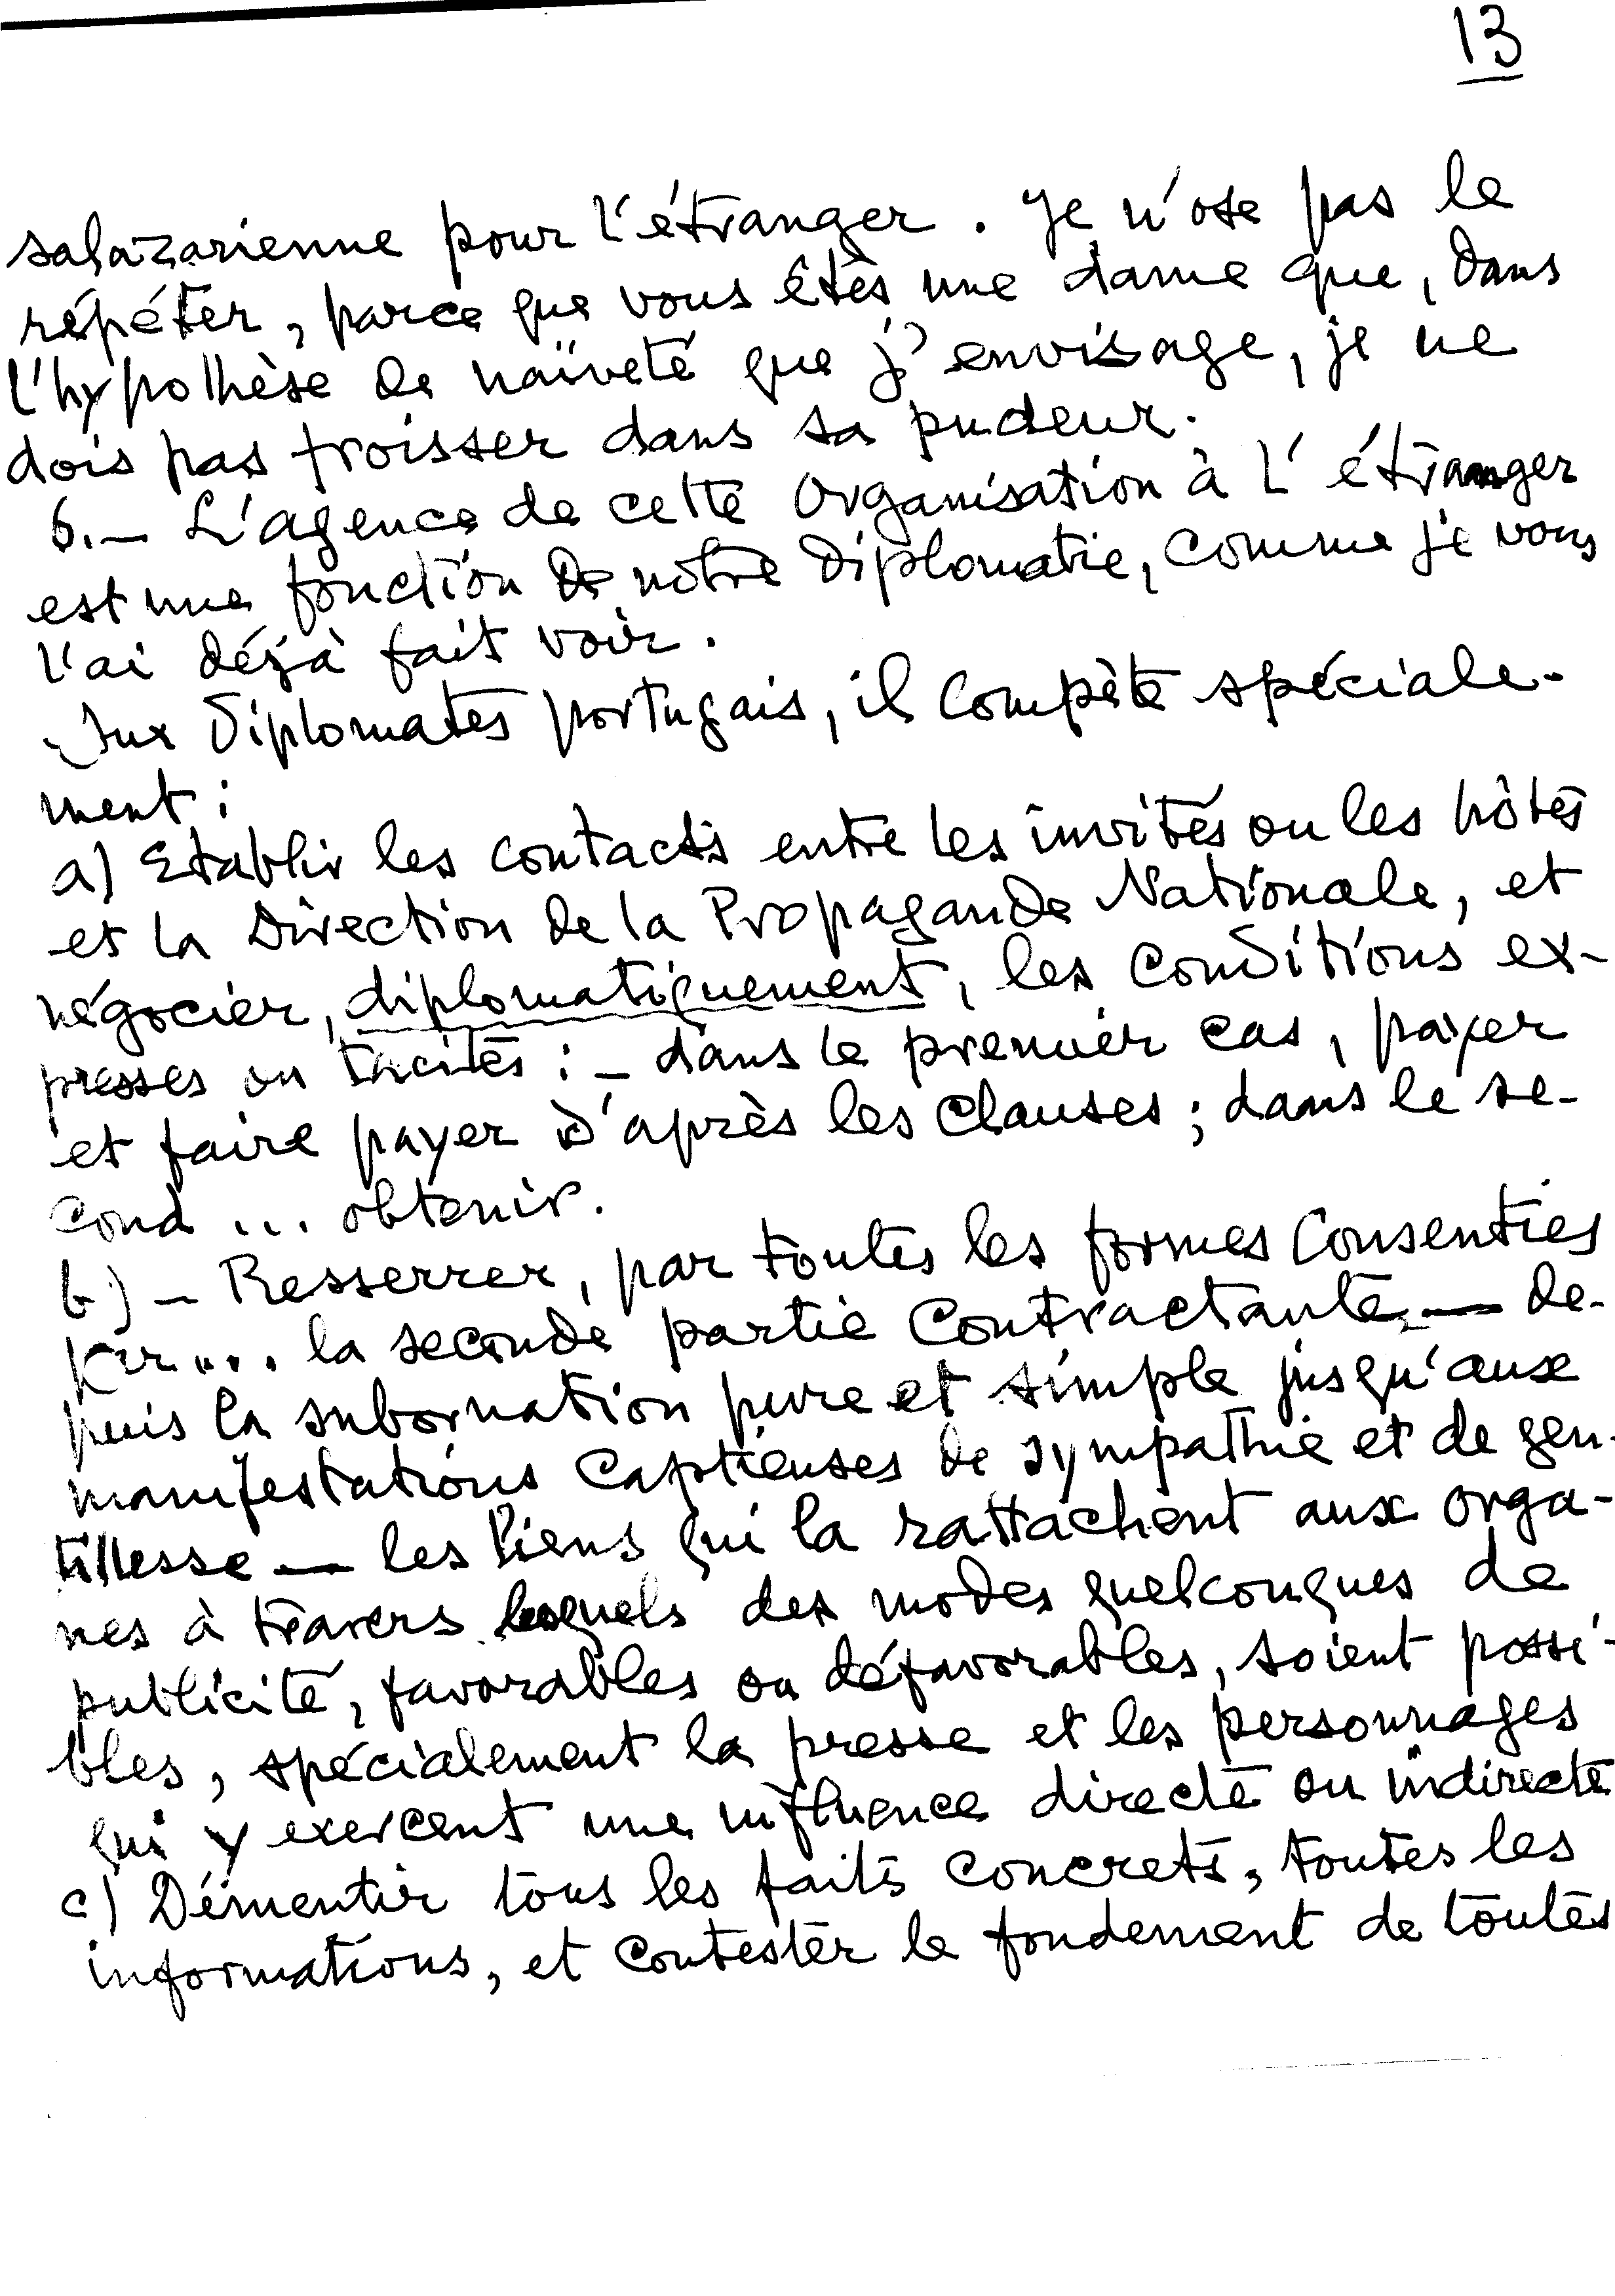 13
salazarienne pour l'étranger. Je n'ose pas le
répéter, parce que vous êtes une dame que, dans
l'hypothèse de naïveté que j'envisage, je ne
dois pas froisser dans sa pudeur.
6.— L'agence de cette organisation à l'étranger
est une fonction de notre diplomatie, comme je vous
l'ai déjà fait voir.
Aux Diplomates portugais, il compète spéciale-
ment :
a) Etablir les contacts entre les invités ou les hôtes
et la Direction de la Propagande Nationale, et
négocier, diplomatiquement, les conditions ex-
presses ou tacites : — dans le premier cas, payer
et faire payer d'après les clauses ; dans le se-
cond ... obtenir.
b) — Resserrer, par toutes les formes consenties
par ... la seconde partie contractante — de-
puis la subornation pure et simple jusqu'aux
manifestations captieuses de sympathie et de gen-
tillesse — les liens qui la rattachent aux orga-
nes à travers lesquels des modes quelconques de
publicité, favorables ou défavorables, soient possi-
bles, spécialement la presse et les personnages
qui y exercent une influence directe ou indirecte
c) Démentir tous les faits concrets, toutes les
informations, et contester le fondement de toutes